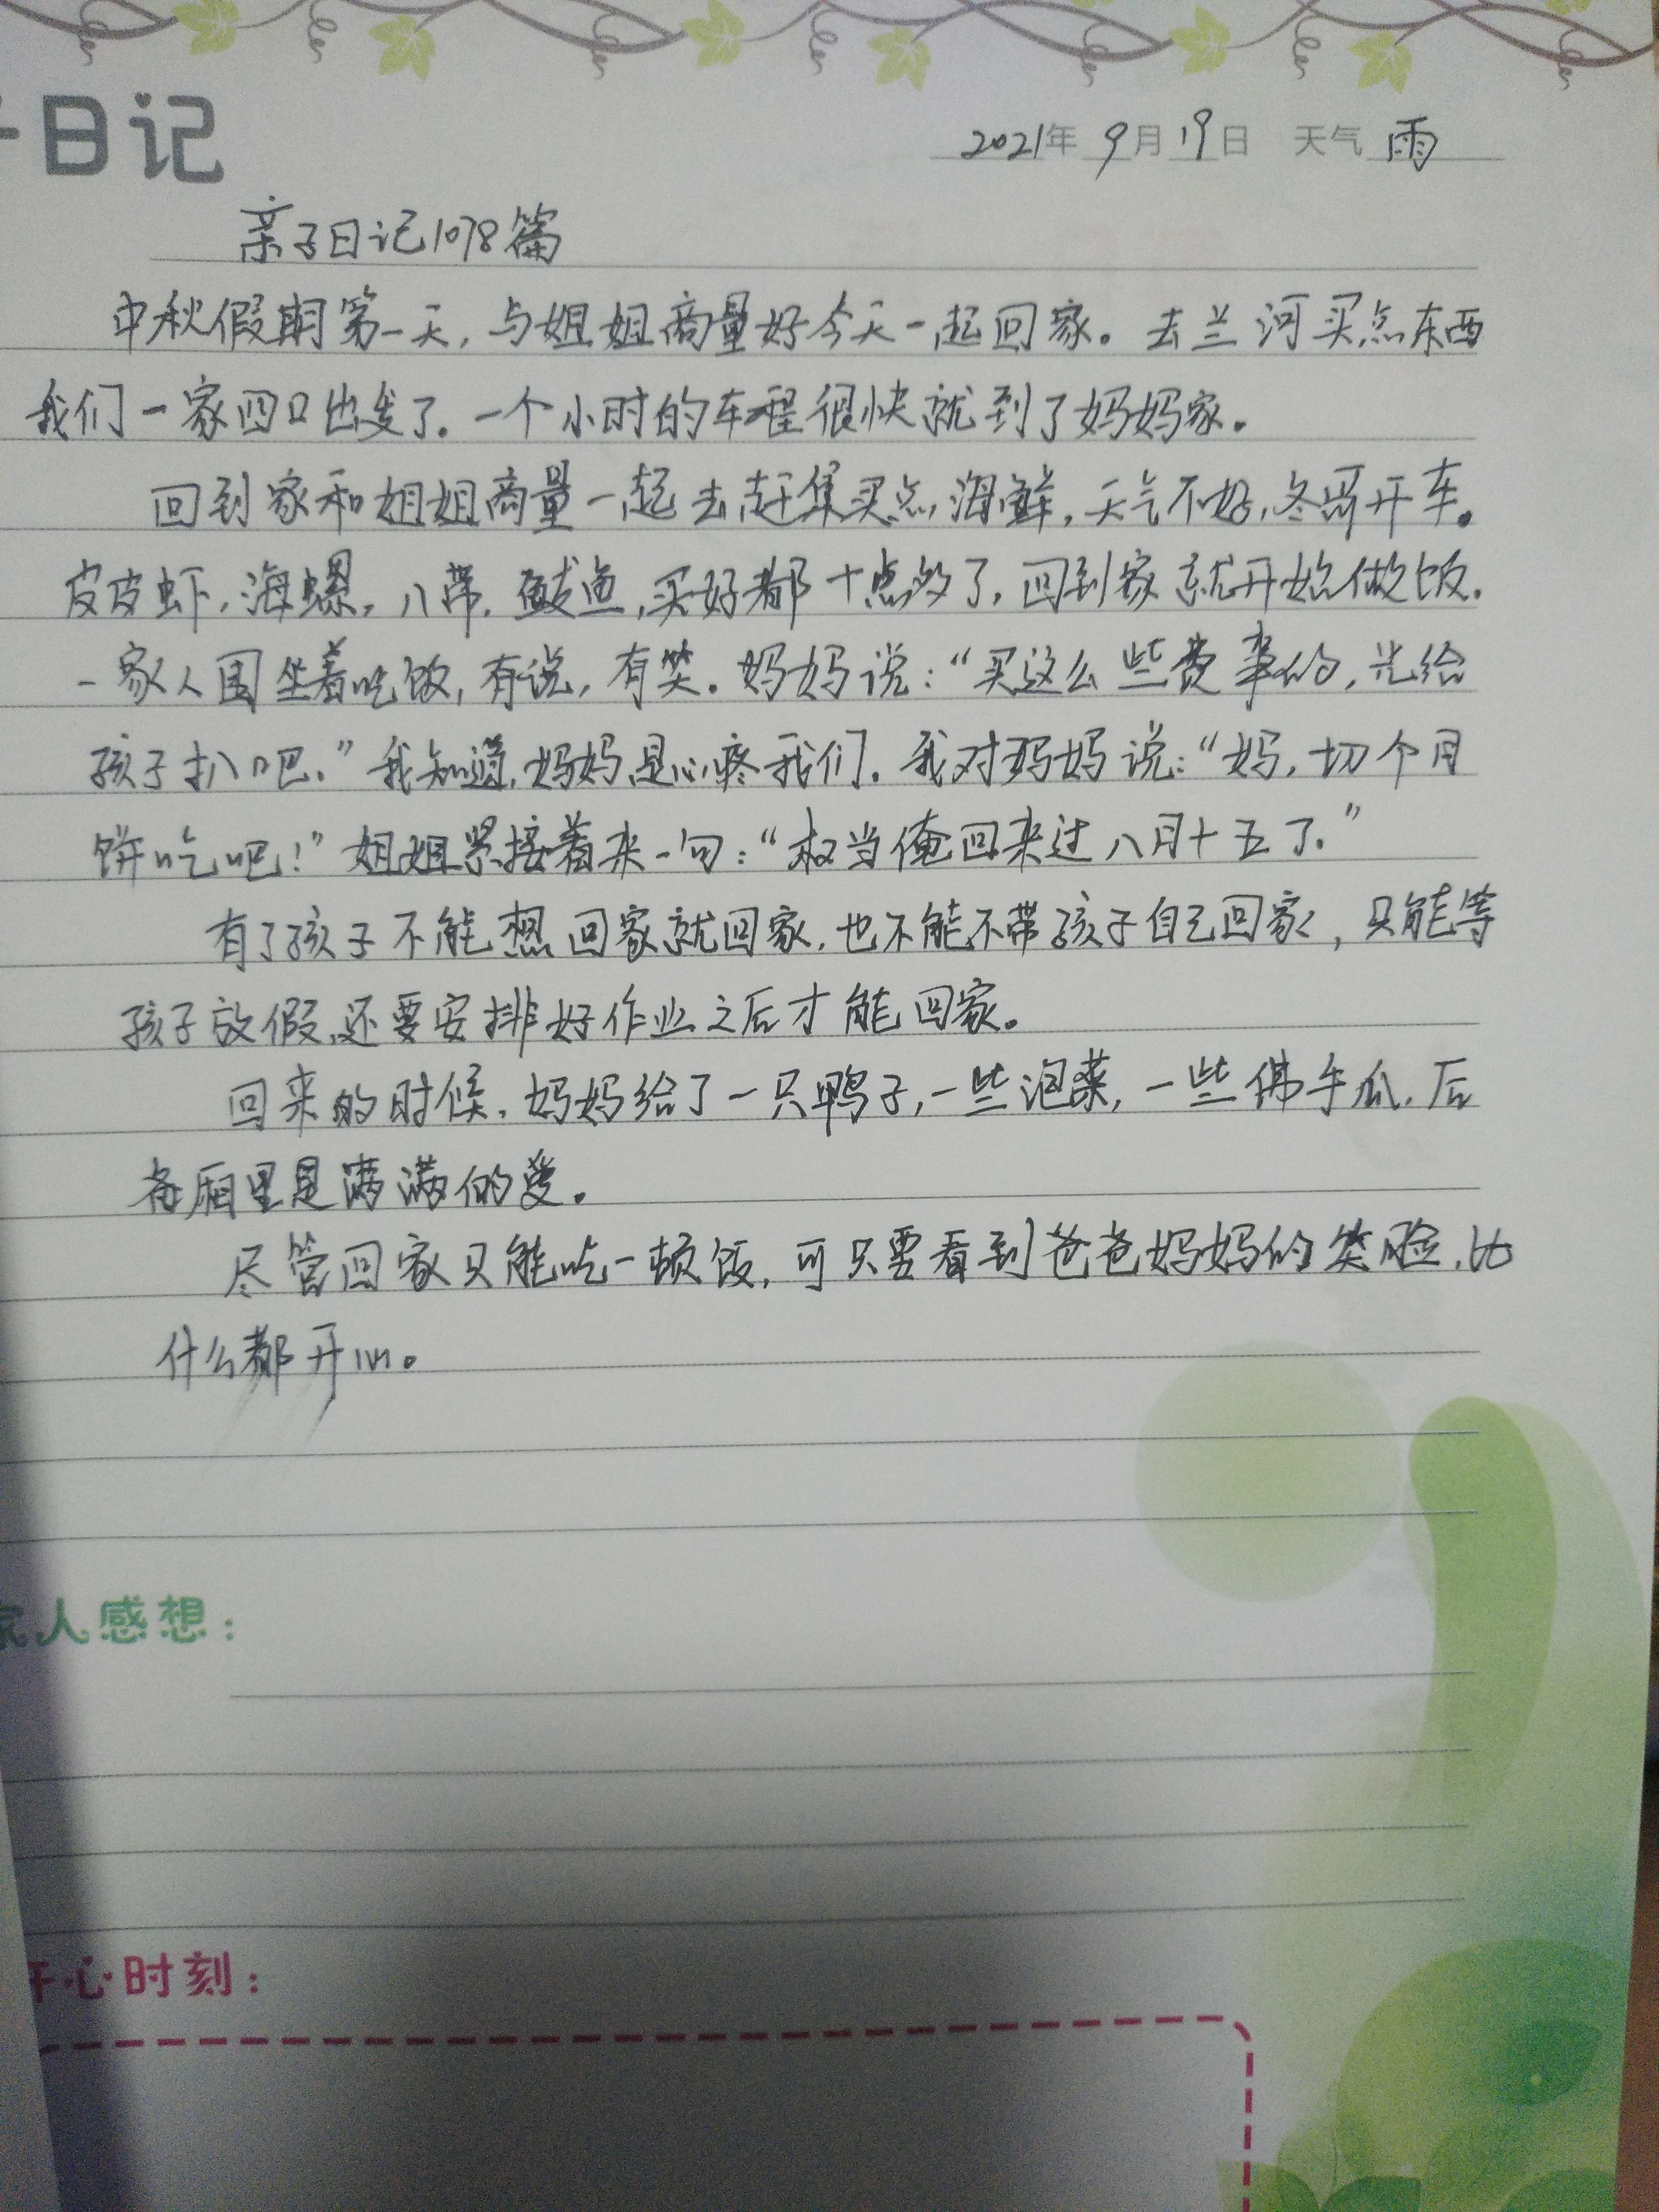 日记
2021年 9月19日 天气 雨
亲子日记1078篇
中秋假期第一天，与姐姐商量好今天一起回家。去兰河买点东西
我们一家四口出发了。一个小时的车程很快就到了妈妈家。
回到家和姐姐商量一起去赶集买点海鲜，天气不好，冬哥开车。
皮皮虾，海螺，八带，鲅鱼，买好都十点多了，回到家就开始做饭。
一家人围坐着吃饭，有说，有笑。妈妈说：“买这么些费事的，光给
孩子扒吧。”我知道，妈妈是心疼我们。我对妈妈说：“妈，切个月
饼吃吧！”姐姐紧接着来一句：“权当俺回来过八月十五了。”
有了孩子不能想回家就回家，也不能不带孩子自己回家，只能等
孩子放假，还要安排好作业之后才能回家。
回来的时候，妈妈给了一只鸭子，一些泡菜，一些佛手瓜，后
备厢里是满满的爱。
尽管回家只能吃一顿饭，可只要看到爸爸妈妈的笑脸，比
什么都开心。
家人感想：
开心时刻：